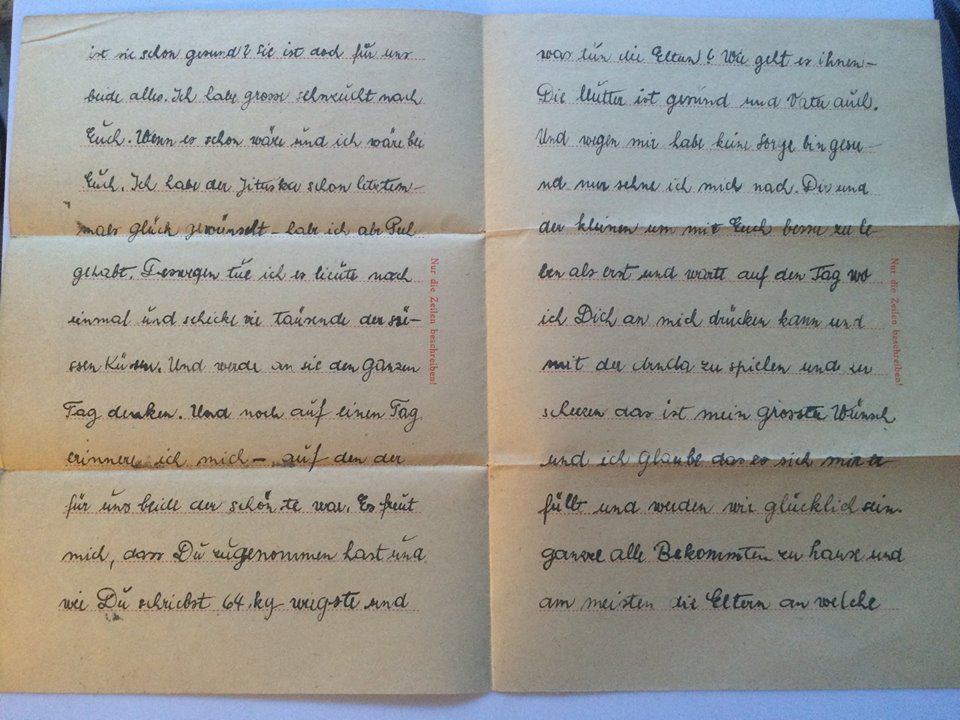 ist sie schon gesund? Sie ist doch für uns
beide alles. Ich habe grosse sehnsucht nach
Euch. Wenn es schon wäre und ich wäre bei
Euch. Ich habe der Jituska schon
mals glück gewünscht – habe ich abe Pech
gehabt. Deswegen tue ich es heute noch
einmal und schicke sie tausende der sü–
ssen Küssen. Und werde an sie den ganzen
Tag denken. Und noch auf einen Tag
erinnere ich mich – auf den der
für uns beide der schönste war. Es freut
mich, dass Du zugenommen hast und
wie Du schriebst 64 kg wiegste und
Nur die Zeilen beschreiben!
was tun die Eltern? Wie geht es ihnen –
Die Mutter ist gesund und Vater auch.
Und wegen mir habe keine Sorge bin gesu–
nd nur sehne ich mich nach Dir und
der kleinen um mit Euch besser zu le
ben als erst und warte auf den Tag wo
ich Dich an mich drücken kann und
mit der zu spielen und zu
scherzen das ist mein grosster Wunsch
und ich glaube das es sich mir er
füllt und werden wir glücklich sein.
alle Bekannten zu hause und
am meisten die Eltern an welche
Nur die Zeilen beschreiben!